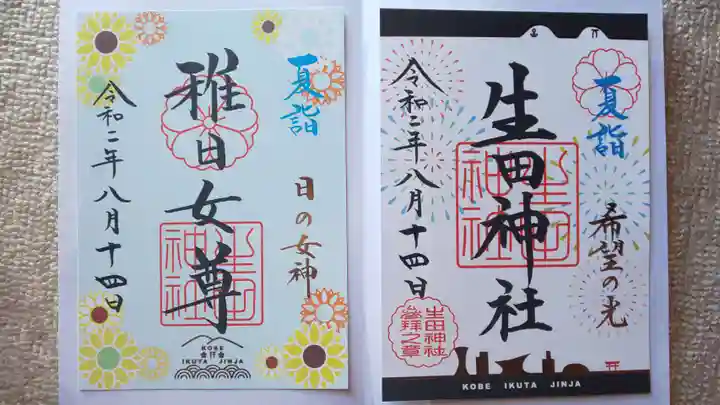 夏詣
稚日女尊
日の女神
令和二年八月十四日
生田神社
KOBE
IKUTA JINJA
夏詣
生田神社
希望の光
令和二年八月十四日
生田神社
生田神社
参拝之章
KOBE IKUTA JINJA